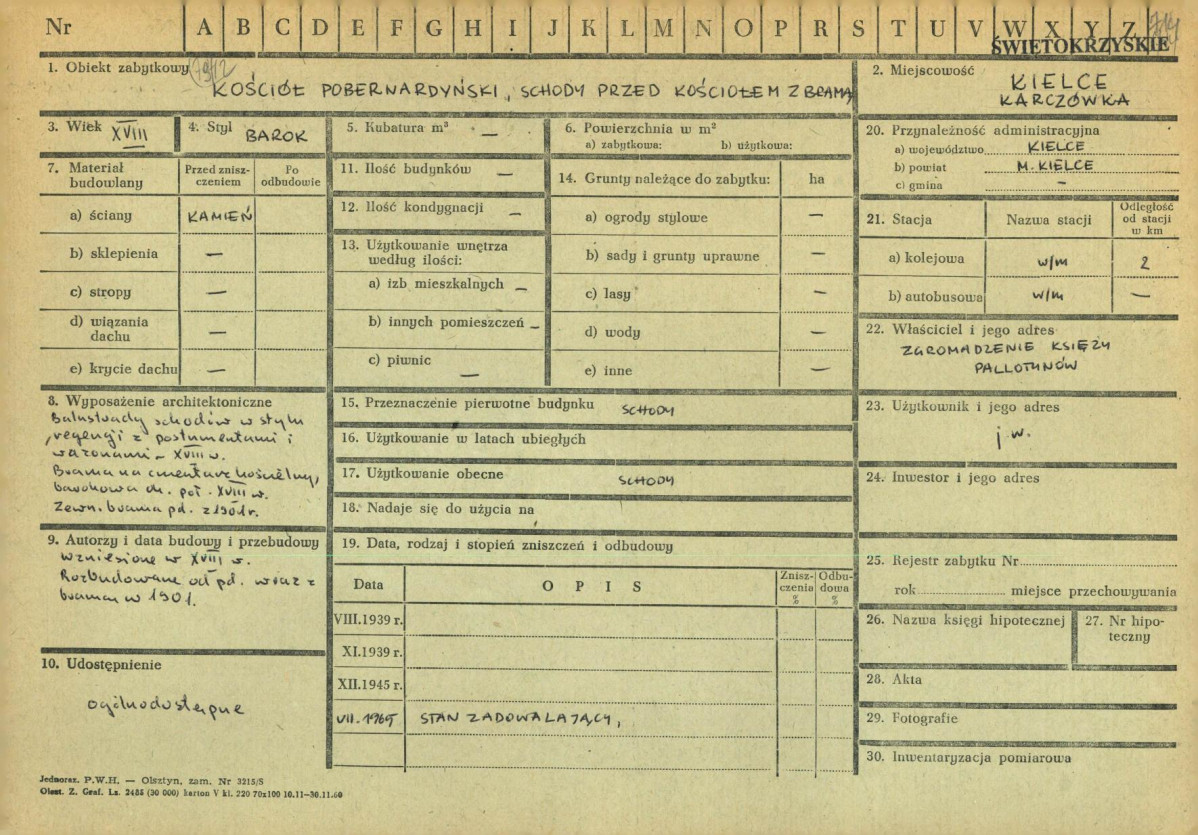 Nr A B C D E F G H I J K L M N O P R S T U V W X Y Z 714
ŚWIĘTOKRZYSKIE
1. Obiekt zabytkowy 7912
KOŚCIÓŁ POBERNARDYŃSKI, SCHODY PRZED KOŚCIOŁEM Z BRAMĄ
2. Miejscowość KIELCE
KARCZÓWKA
3. Wiek XVIII
4. Styl BAROK
5. Kubatura m³ —
6. Powierzchnia w m²
a) zabytkowa: b) użytkowa:
7. Materiał budowlany
Przed zniszczeniem
Po odbudowie
a) ściany KAMIEŃ
b) sklepienia —
c) stropy —
d) wiązania dachu —
e) krycie dachu —
8. Wyposażenie architektoniczne
Balustrady schodów w stylu
regencji z postumentami i
wazonami – XVIII w.
Brama na cmentarz kościelny,
barokowa dr. poł. XVIII w.
Zewn. brama pd. z 1901 r.
9. Autorzy i data budowy i przebudowy
Wzniesione w XVIII w.
Rozbudowane od pd. wraz z
bramą w 1901.
10. Udostępnienie
ogólnodostępne
11. Ilość budynków —
12. Ilość kondygnacji —
13. Użytkowanie wnętrza
według ilości:
a) izb mieszkalnych —
b) innych pomieszczeń —
c) piwnic —
14. Grunty należące do zabytku: ha
a) ogrody stylowe —
b) sady i grunty uprawne —
c) lasy —
d) wody —
e) inne —
15. Przeznaczenie pierwotne budynku SCHODY
16. Użytkowanie w latach ubiegłych
17. Użytkowanie obecne SCHODY
18. Nadaje się do użycia na
19. Data, rodzaj i stopień zniszczeń i odbudowy
Data OPIS Zniszczenia % Odbudowa %
VIII.1939 r.
XI.1939 r.
XII.1945 r.
VII.1965 STAN ZADOWALAJĄCY,
20. Przynależność administracyjna
a) województwo KIELCE
b) powiat M. KIELCE
c) gmina —
21. Stacja Nazwa stacji Odległość od stacji w km
a) kolejowa w/m 2
b) autobusowa w/m —
22. Właściciel i jego adres
ZGROMADZENIE KSIĘŻY
PALLOTYNÓW
23. Użytkownik i jego adres
j.w.
24. Inwestor i jego adres
25. Rejestr zabytku Nr
rok miejsce przechowywania
26. Nazwa księgi hipotecznej
27. Nr hipoteczny
28. Akta
29. Fotografie
30. Inwentaryzacja pomiarowa
Jednoraz. P.W.H. — Olsztyn, zam. Nr 3215/S
Olszt. Z. Graf. Lz. 2485 (30 000) karton V kl. 220 70x100 10.11—30.11.60